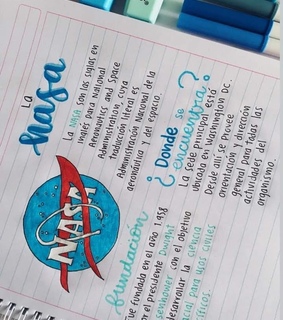 La
Nasa
La NASA son las siglas en
inglés para National
Aeronautics and Space
Administration, cuya
traducción literal es
Administración Nacional de la
aeronáutica y del espacio.
NASA
¿Donde se
encuentra?
La sede principal está
ubicada en Washington DC.
Desde allí se provee
orientación y dirección
general para todas las
actividades del
organismo.
fundación
ue fundada en el año 1.958
or el presidente Dwight
senhower con el objetivo
desarrollar la ciencia
cial para usos civiles
tíficos.